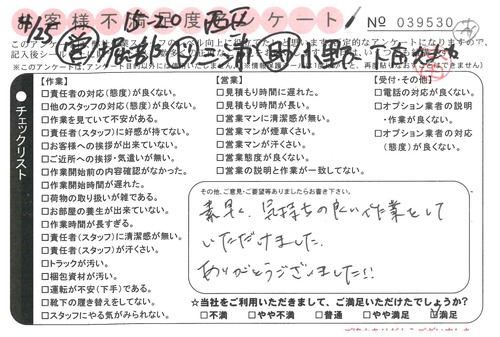 お客様不満足度アンケート
4/25 15-20 西区
No 039530
※このアンケートは、アンケート目的以外には
チェックリスト
【作業】
□責任者の対応(態度)が良くない。
□他のスタッフの対応(態度)が良くない。
□作業を見ていて不安がある。
□責任者(スタッフ)に好感が持てない。
□お客様への挨拶が出来ていない。
□ご近所への挨拶・気遣いが無い。
□作業開始前の内容確認がなかった。
□作業開始時間が遅れた。
□荷物の取り扱いが雑である。
□お部屋の養生が出来ていない。
□作業時間が長すぎる。
□責任者(スタッフ)に清潔感が無い。
□責任者(スタッフ)が汗くさい。
□トラックが汚い。
□梱包資材が汚い。
□運転が不安(下手)である。
□靴下の履き替えをしてない。
□スタッフにやる気がみられない。
【営業】
□見積もり時間に遅れた。
□見積もり時間が長い。
□営業マンに清潔感が無い。
□営業マンが煙草くさい。
□営業マンが汗くさい。
□営業態度が良くない。
□営業の説明と作業が一致してない。
【受付・その他】
□電話の対応が良くない。
□オプション業者の説明
・作業が良くない。
□オプション業者の対応
(態度)が良くない。
その他、ご意見・ご要望等ありましたらお書き下さい。
素早く、気持ちの良い作業をして
いただけました。
ありがとうございました!!
☆当社をご利用いただきまして、ご満足いただけたでしょうか?
□不満 □やや不満 □普通 □やや満足 ☑満足